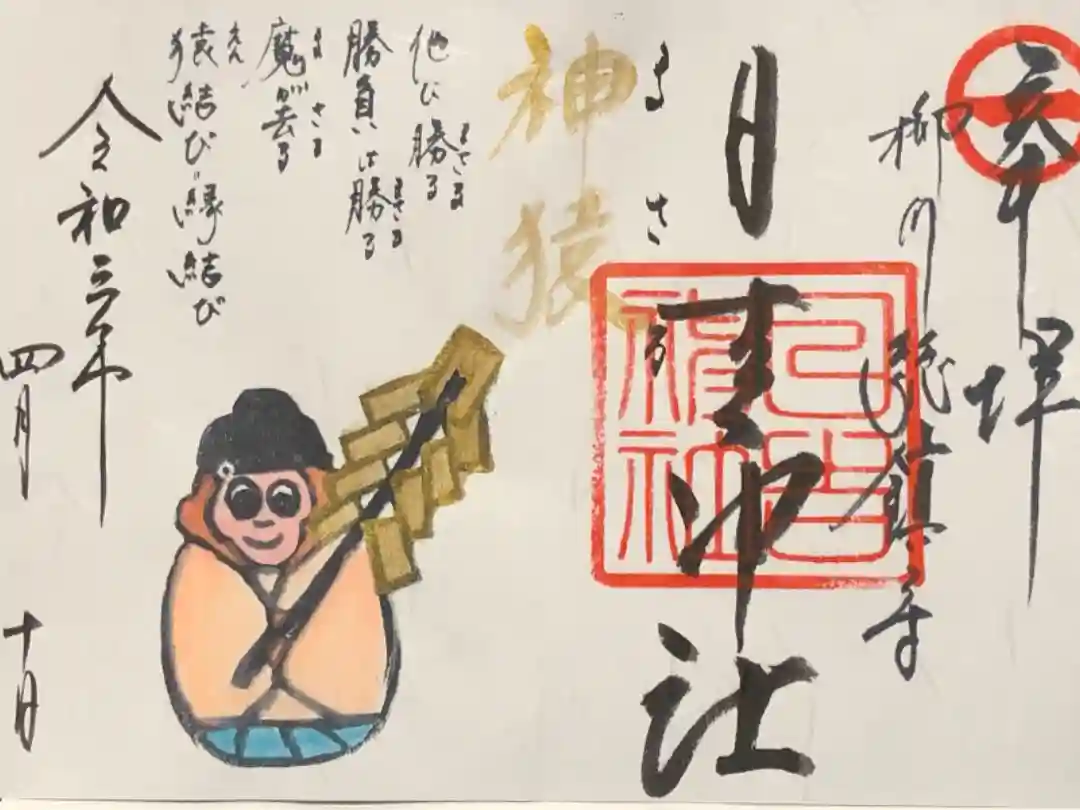 奉拝
柳川総鎮守
日吉神社
日吉神社
まさる
神猿
他に勝る
まさる
勝負に勝る
まさる
魔が去る
まさる
猿結び=縁結び
えん
令和三年
四月十日